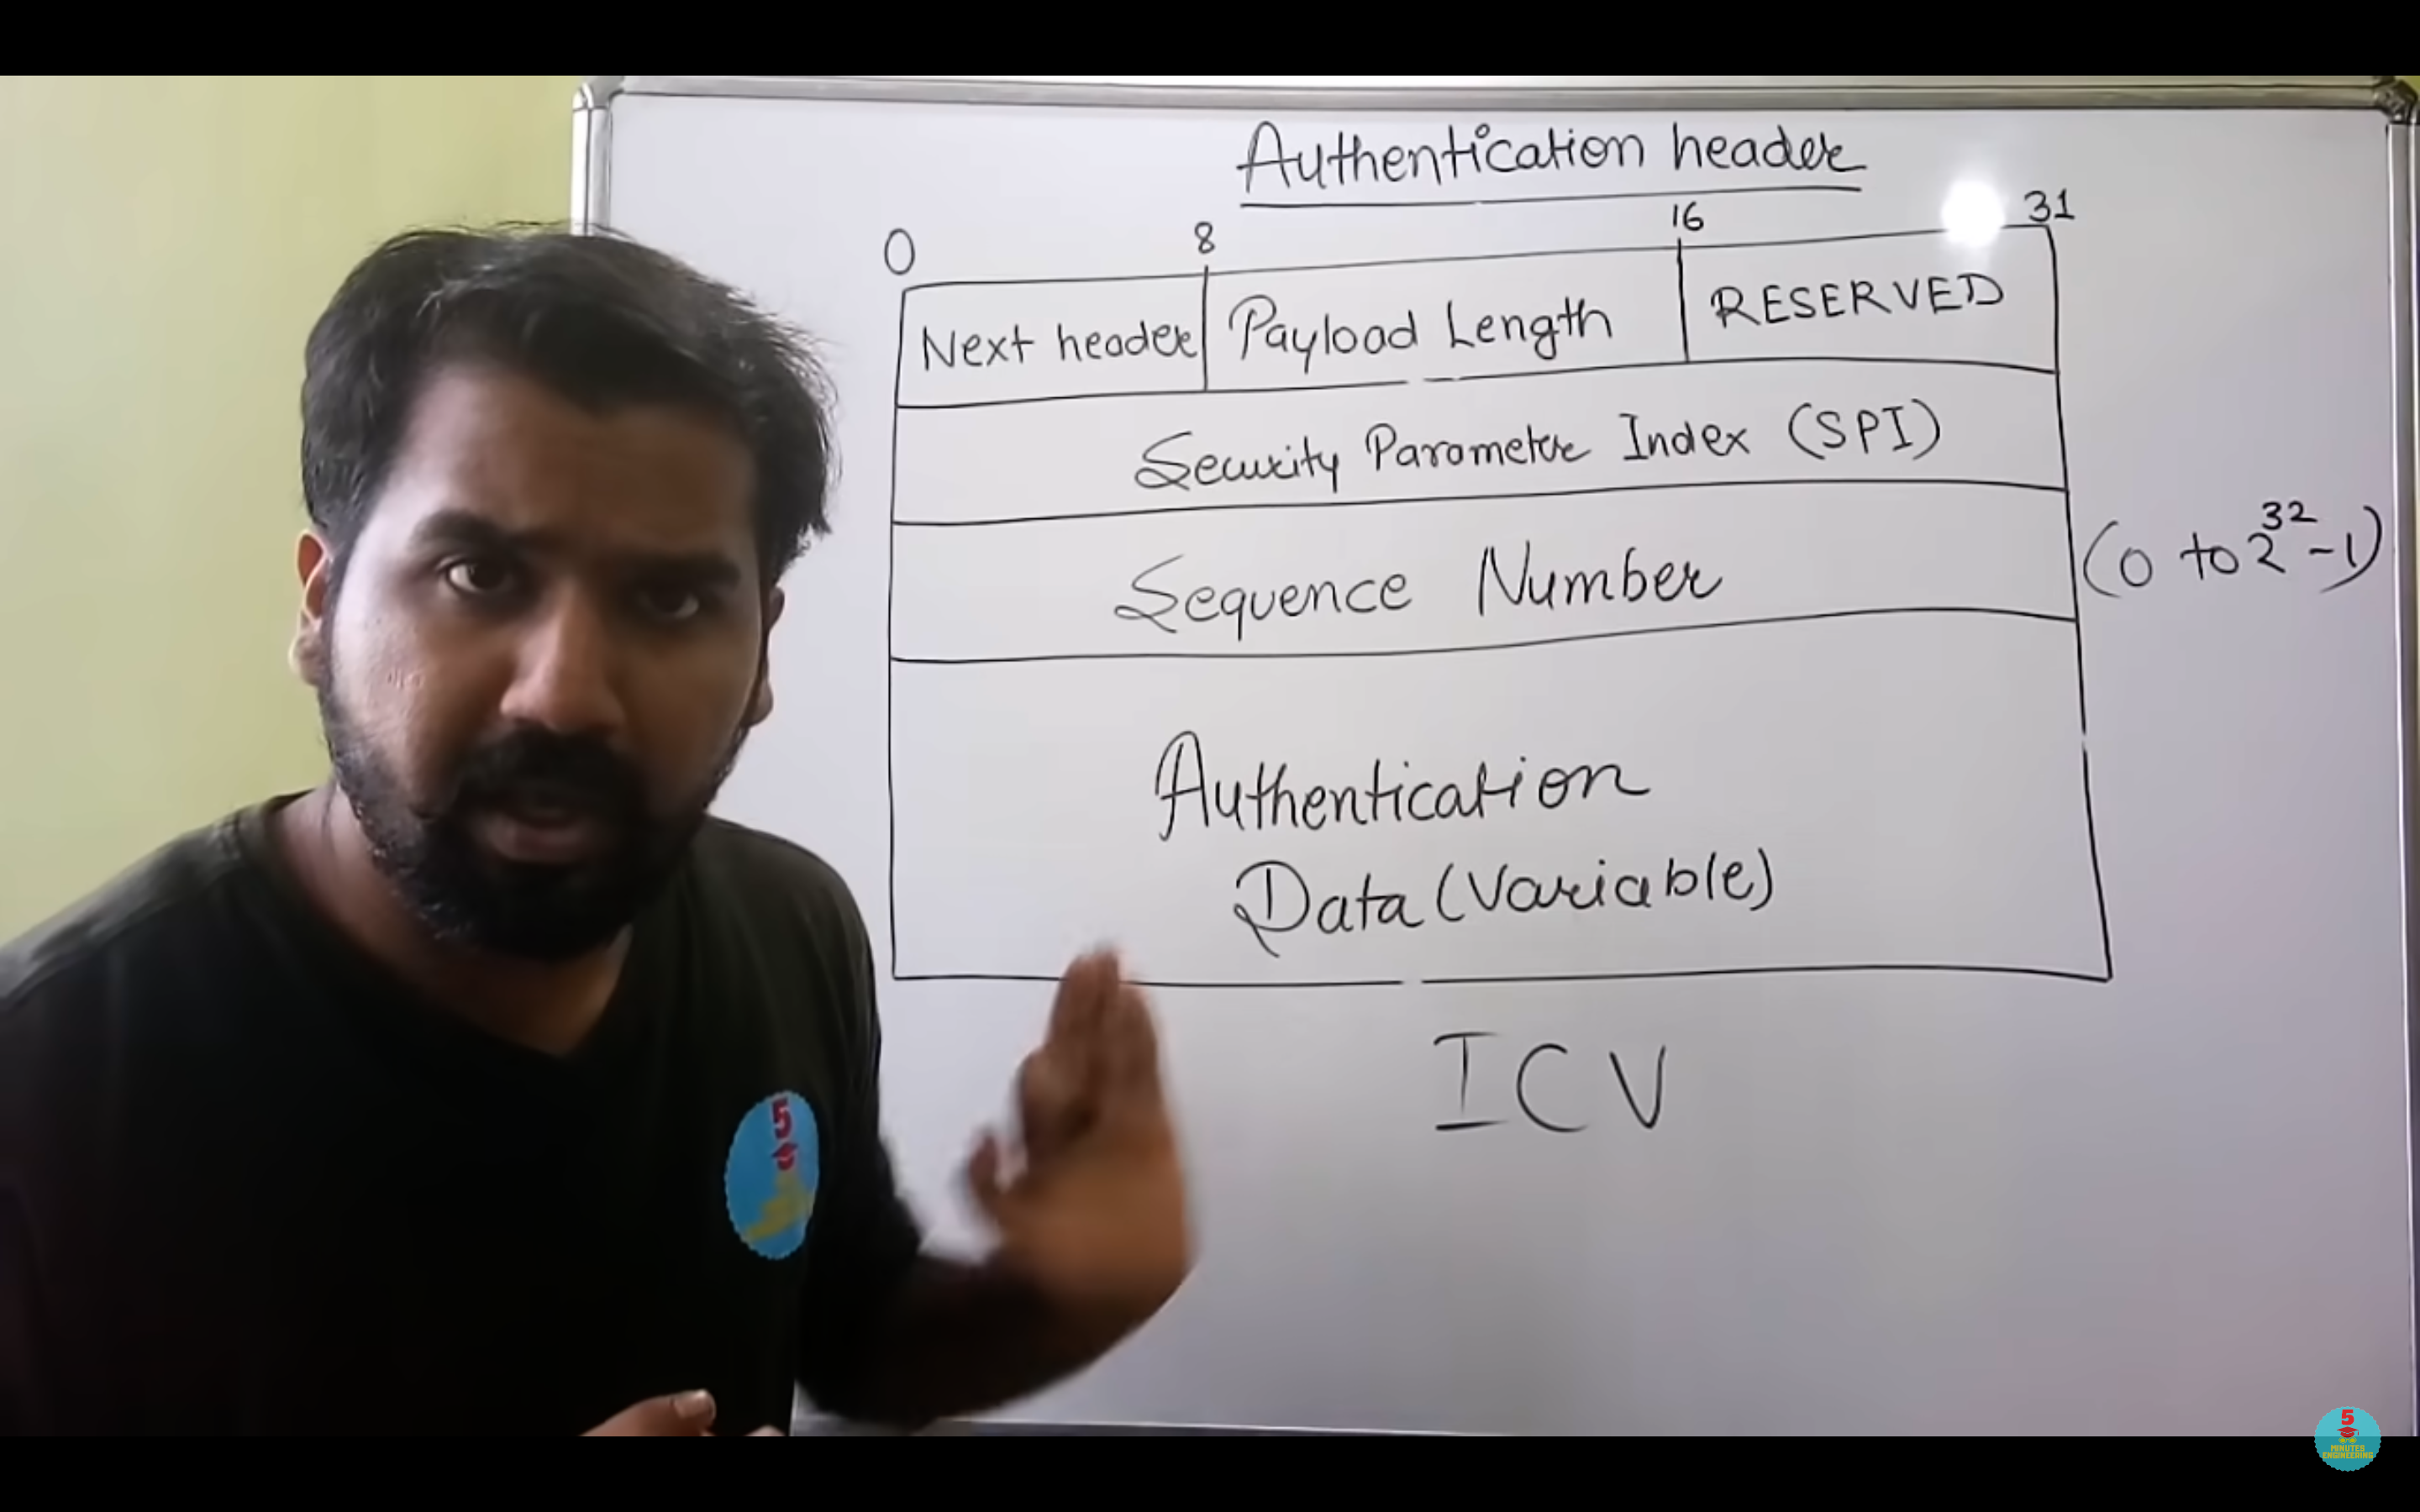 Authentication header
0 8 16 31
Next header Payload Length RESERVED
Security Parameter Index (SPI)
Sequence Number (0 to 2^32-1)
Authentication
Data (Variable)
ICV
5
5
MINUTES
ENGINEERING